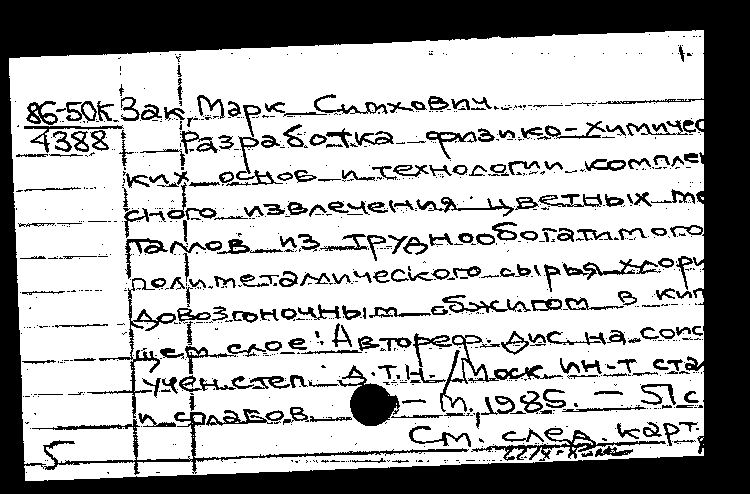 1.
86-50К Зак, Марк Симхович
4388 Разработка физико-химичес
ких основ и технологии комплек
сного извлечения цветных ме
таллов из труднообогатимого
полиметаллического сырья хлори
довозгоночным обжигом в кип
щем слое: Автореф. дис. на соис
учен. степ. д.т.н. / Моск. ин-т ста
и сплавов. — М., 1985. — 51 с
См. след. карт.
5